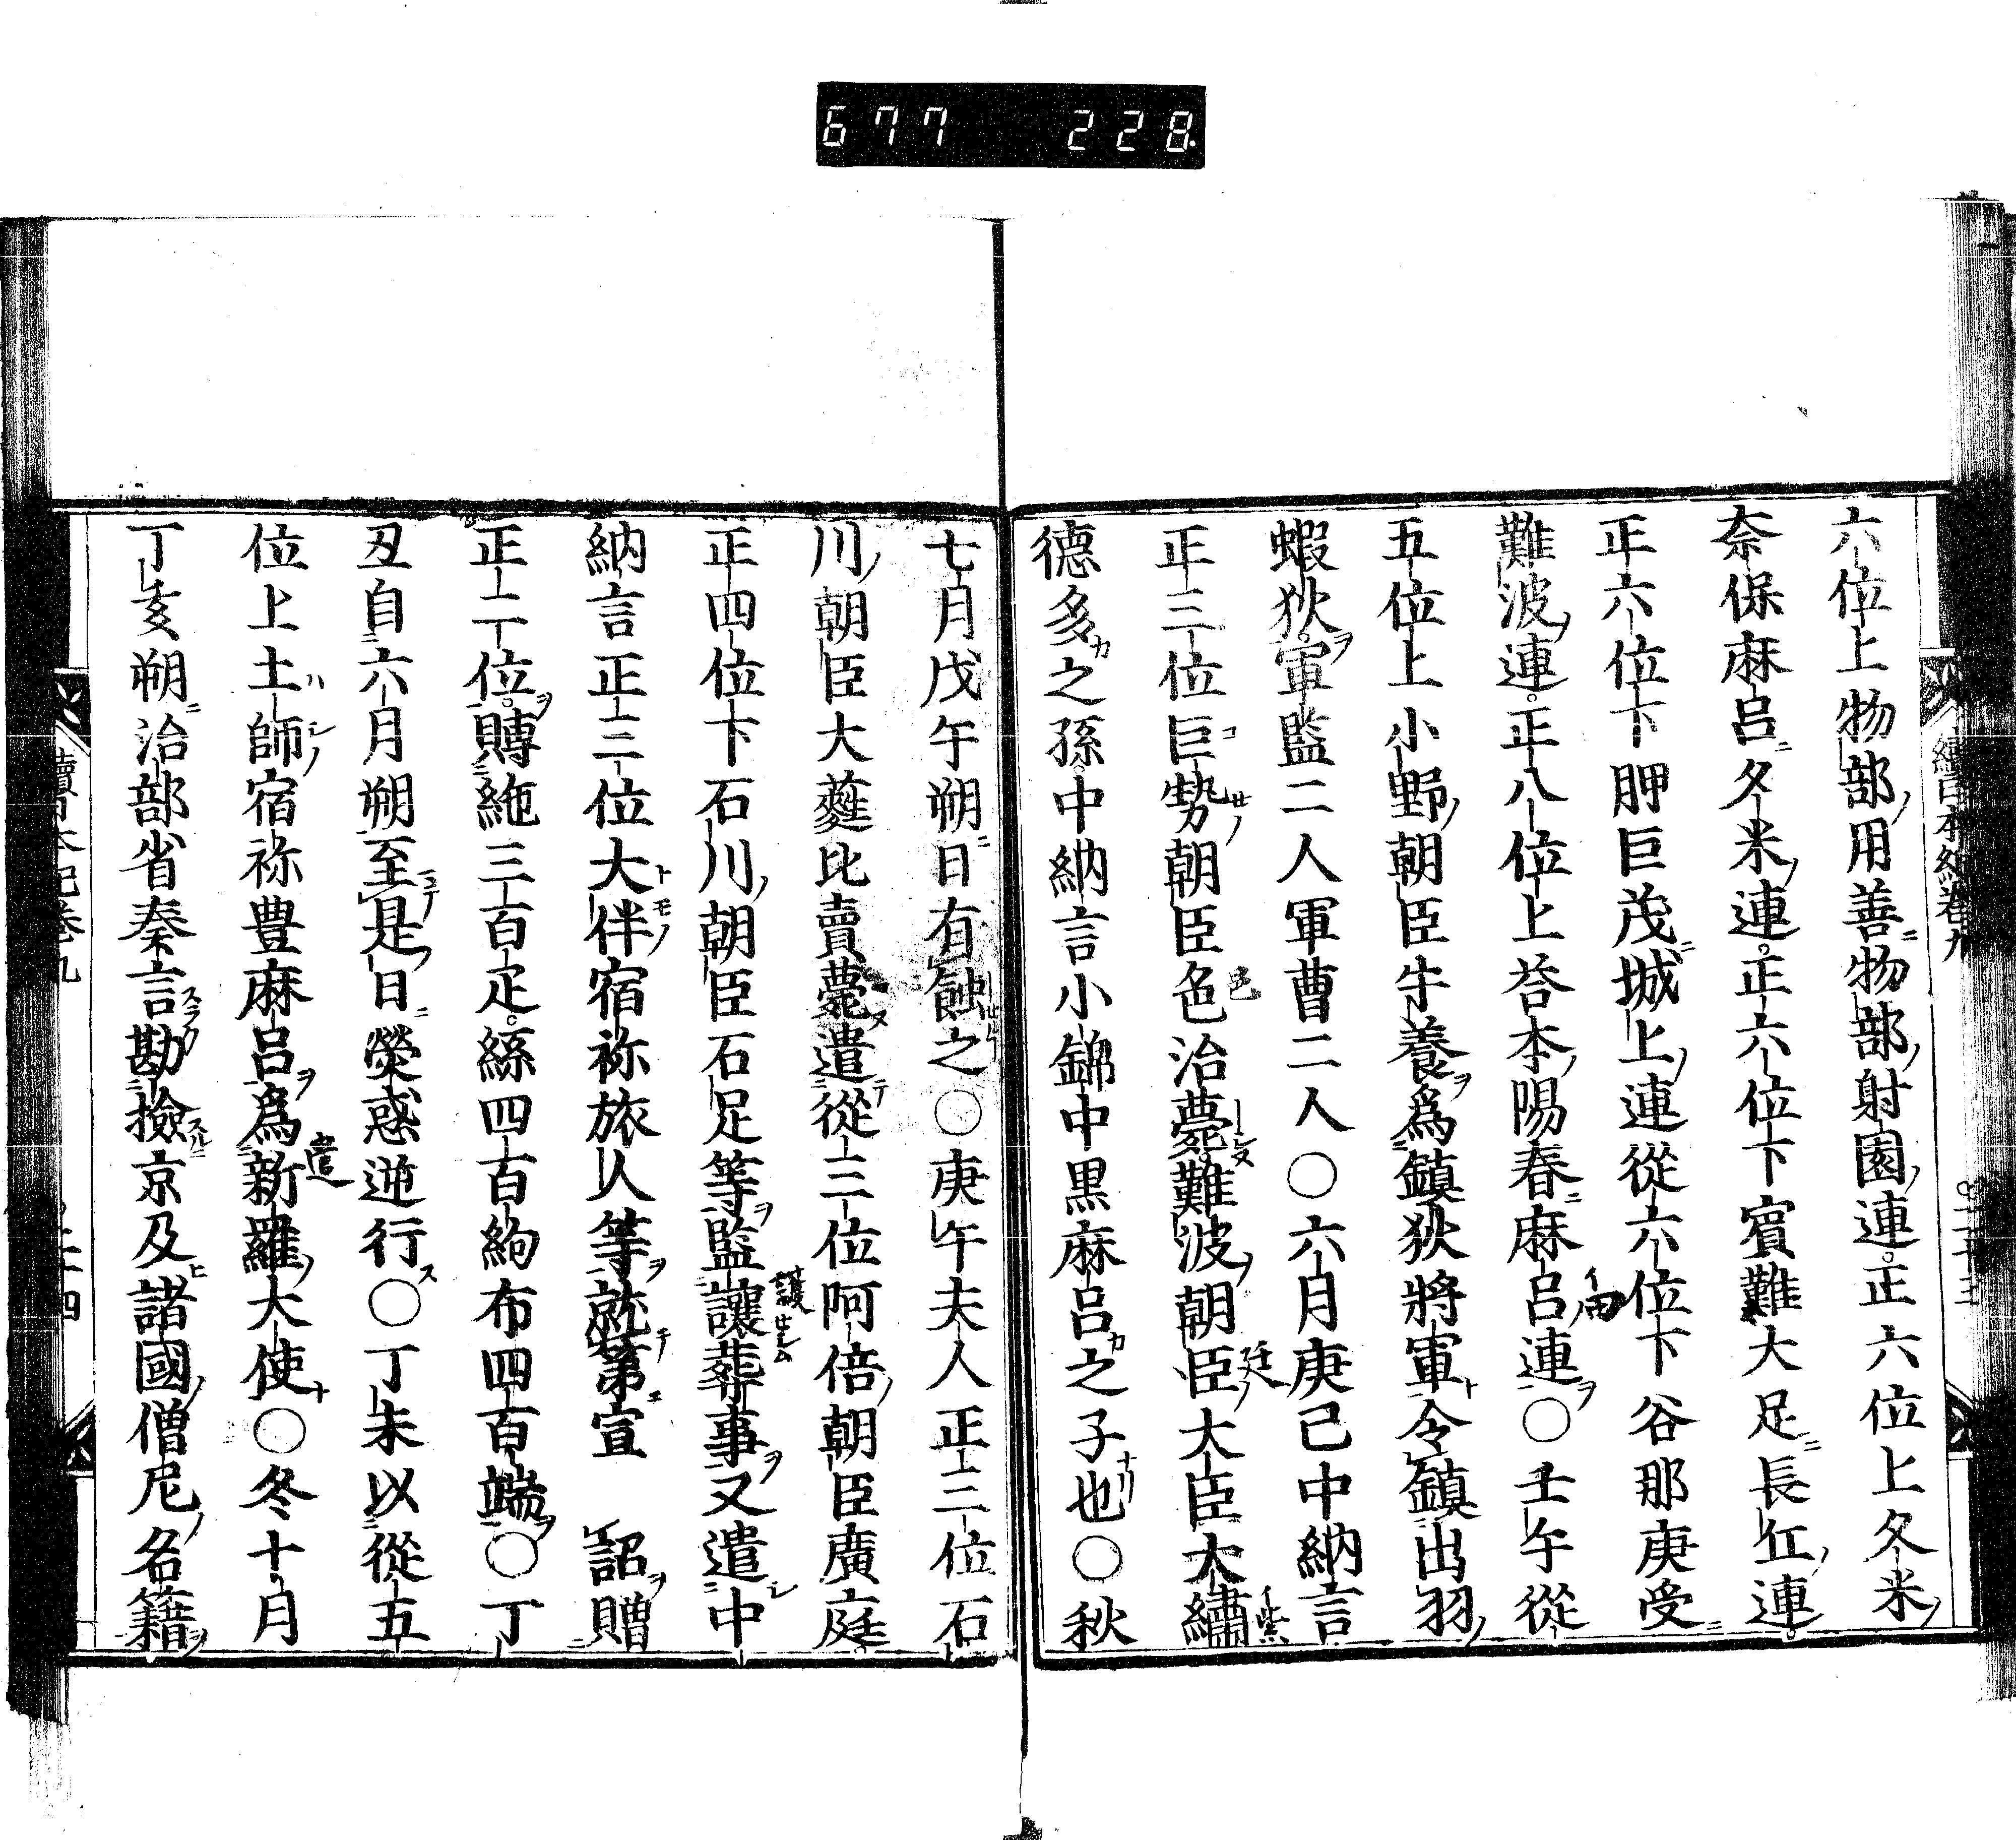 677 228
六位上物部用善物部射園連正六位上久米
奈保麻呂久米連正六位下賓難大足長丘連
正六位下胛巨茂城上連從六位下谷那庚受
難波連正八位上荅本陽春麻呂連〇壬午從
五位上小野朝臣牛養爲鎮狄將軍令鎮出羽
蝦狄軍監二人軍曹二人〇六月庚己中納言
正三位巨勢朝臣色治薨難波朝臣大臣大繡
德多之孫中納言小錦中黒麻呂之子也〇秋
七月戊午朔日有蝕之〇庚午夫人正三位石
川朝臣大蕤比賣薨遣從三位阿倍朝臣廣庭
正四位下石川朝臣石足等監讓葬事又遣中
納言正三位大伴宿祢旅人等就第宣 詔贈
正二位賻絁三百疋絲四百絇布四百端〇丁
丑自六月朔至是日熒惑逆行〇丁未以從五
位上土師宿祢豊麻呂爲新羅大使〇冬十月
丁亥朔治部省奏言勘撿京及諸國僧尼名籍
續日本紀卷九